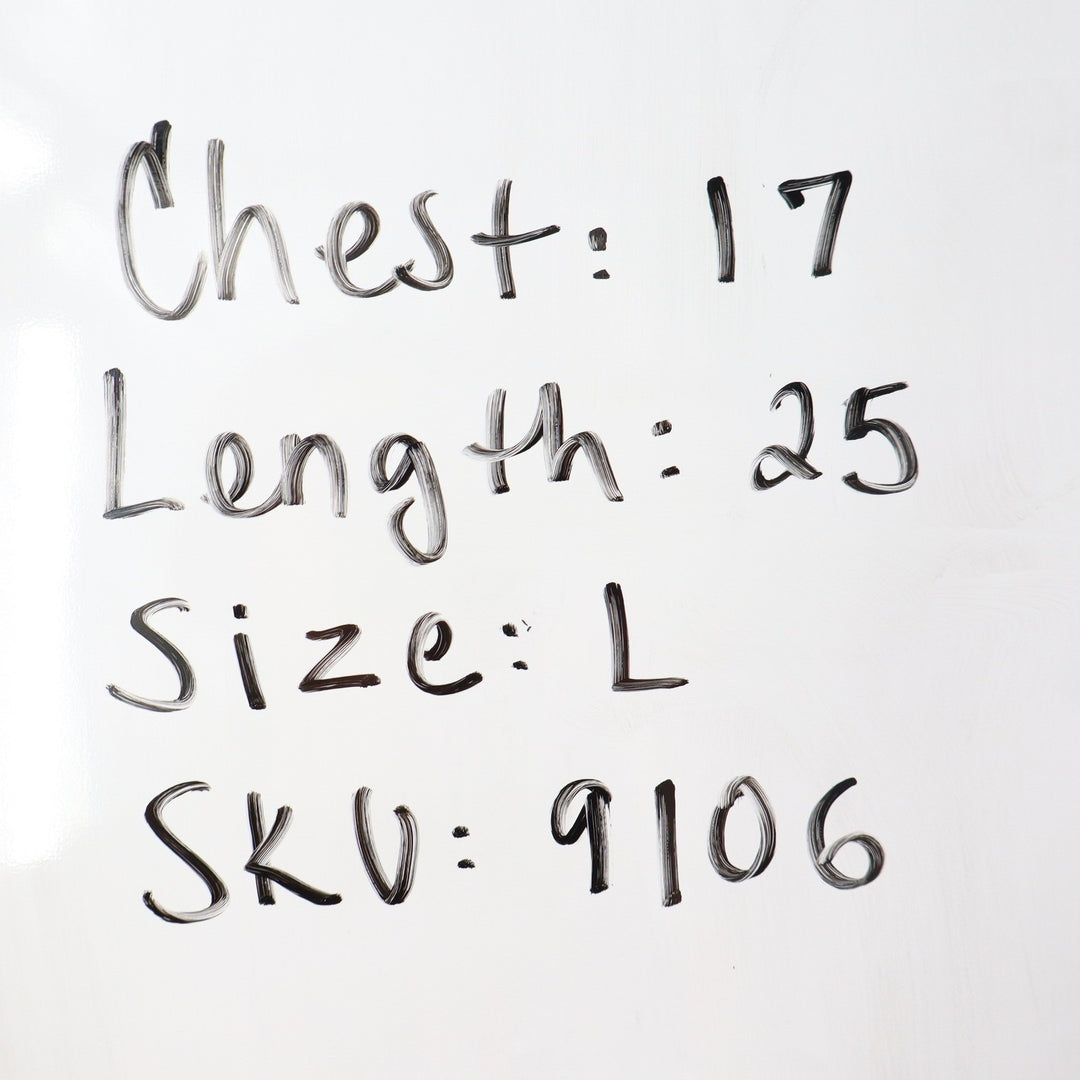 Chest: 17
Length: 25
Size: L
SKU: 9106